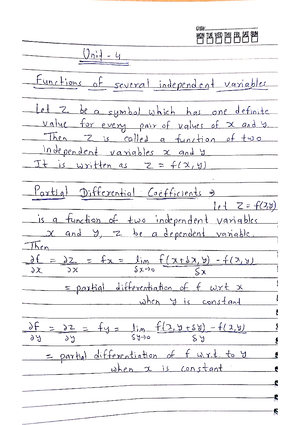 Unit - 4
Functions of several independent variables
Let Z be a symbol which has one definite
value for every pair of values of x and y.
Then Z is called a function of two
independent variables x and y
It is written as Z = f(x,y)
Partial Differential Coefficients ⇒
let Z = f(x,y)
is a function of two independent variables
x and y, z be a dependent variable.
Then
∂f/∂x = ∂z/∂x = fx = lim δx→0 f(x+δx, y) - f(x,y) / δx
= partial differentiation of f wrt x
when y is constant
∂f/∂y = ∂z/∂y = fy = lim δy→0 f(x, y+δy) - f(x,y) / δy
= partial differentiation of f w.r.t to y
when x is constant